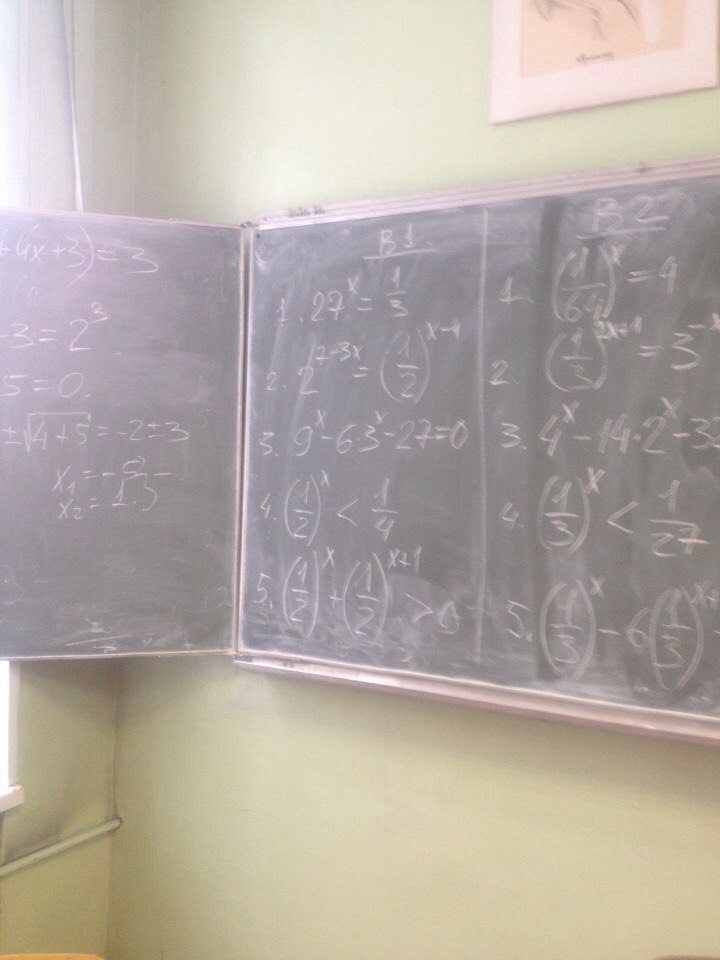 +4x+3)=3
-3=2³
5=0.
±√(4+5)=-2±3
x₁=
x₂=
B1.
1. 27^x = 1/3
2. 2^(7-3x) = (1/2)^(x-4)
3. 9^x - 6·3^x - 27=0
4. (1/2)^x < 1/4
5. (1/2)^x + (1/2)^(x+1) >
B2
1. (1/64)^x =
2. (1/3)^(2x+1) = 3^(-x
3. 4^x - 14·2^x - 32
4. (1/3)^x < 1/27
5. (1/3)^x - 6(1/3)^(x+